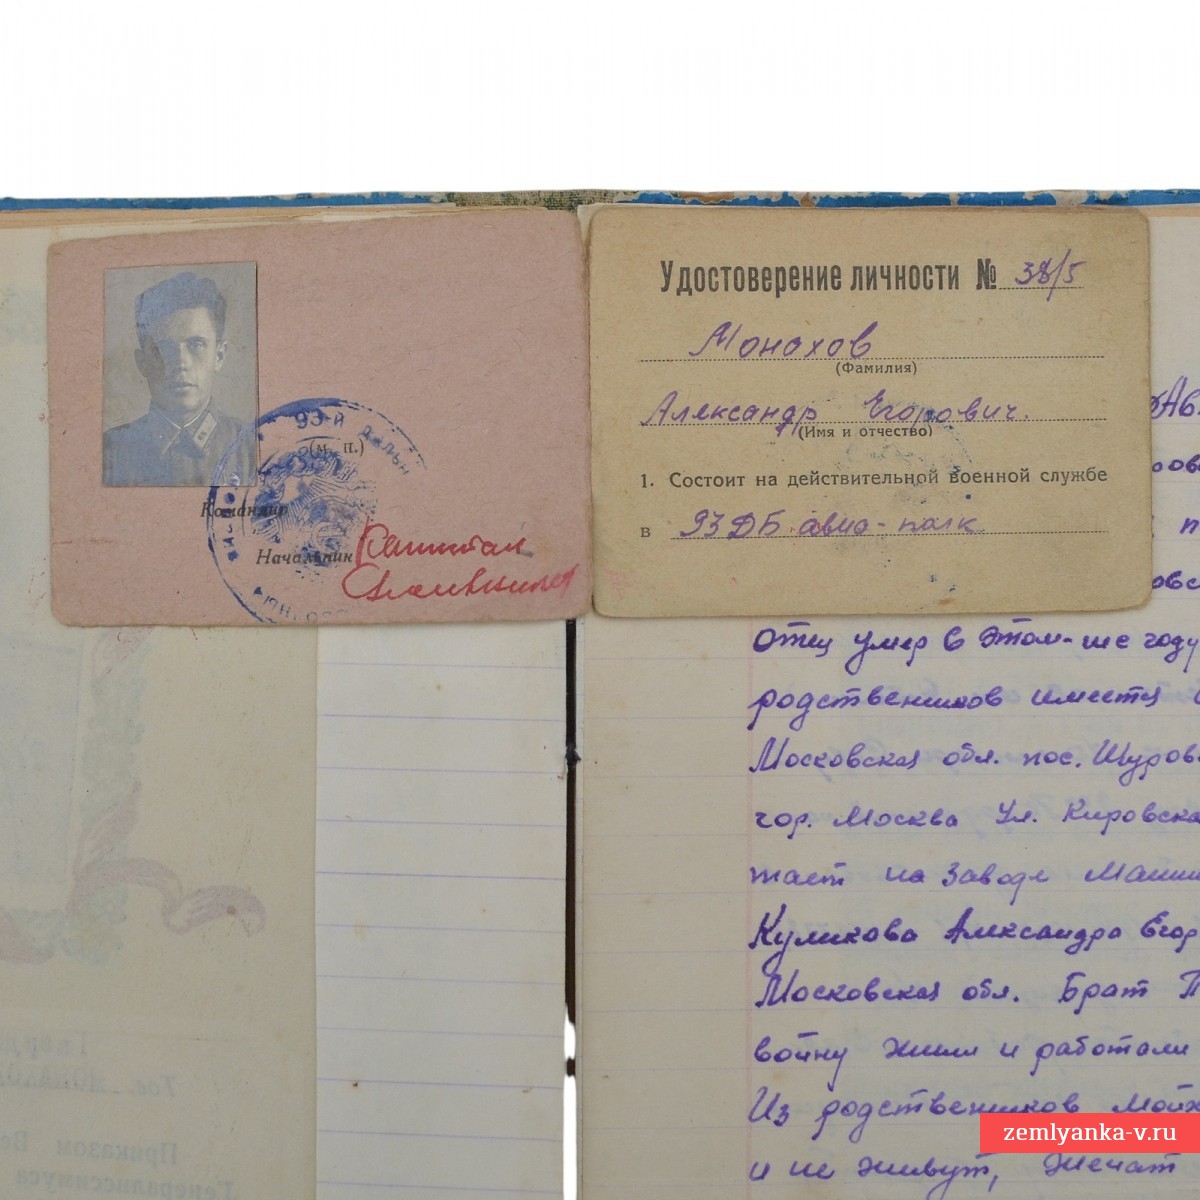 93-й дальн
(м. п.)
Командир
Начальник Капитан
Удостоверение личности № 38/5
Монахов
(Фамилия)
Александр Егорович.
(Имя и отчество)
1. Состоит на действительной военной службе
в 93 ДБ. авиа-полк
отец умер в этом-же году
родственников имеетц
Московская обл. пос. Шуров
гор. Москва Ул. Кировска
тает на заводе Маши
Куликова Александра Егор
Московская обл. Брат П
войну жили и работали
Из родственников Мойх
и не живут, Жечат
Приказом Ве
Генералиссимуса
zemlyanka-v.ru